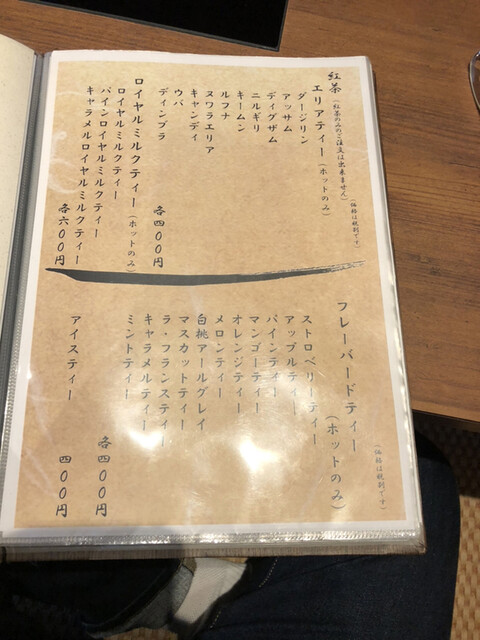 紅茶（紅茶のみのご注文は出来ません）（価格は税別です）
エリアティー（ホットのみ）
ダージリン
アッサム
ディグザム
ニルギリ
キームン
ルフナ
ヌワラエリア
キャンディ
ウバ
ディンブラ
各四００円
ロイヤルミルクティー（ホットのみ）
ロイヤルミルクティー
パインロイヤルミルクティー
キャラメルロイヤルミルクティー
各六００円
（価格は税別です）
フレーバードティー（ホットのみ）
ストロベリーティー
アップルティー
パインティー
マンゴーティー
オレンジティー
メロンティー
白桃アールグレイ
マスカットティー
ラ・フランスティー
キャラメルティー
ミントティー
各四００円
アイスティー
四００円